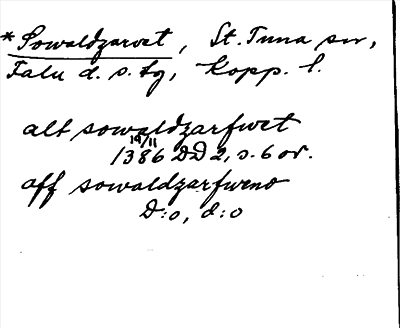 *Sowaldzarvet, St. Tuna sn,
Falu d. s. fg, Kopp. l.
alt sowaldzarfwet
19/11
1386 DD 2, s. 6 or.
aff sowaldzarfweno
D:o, d:o